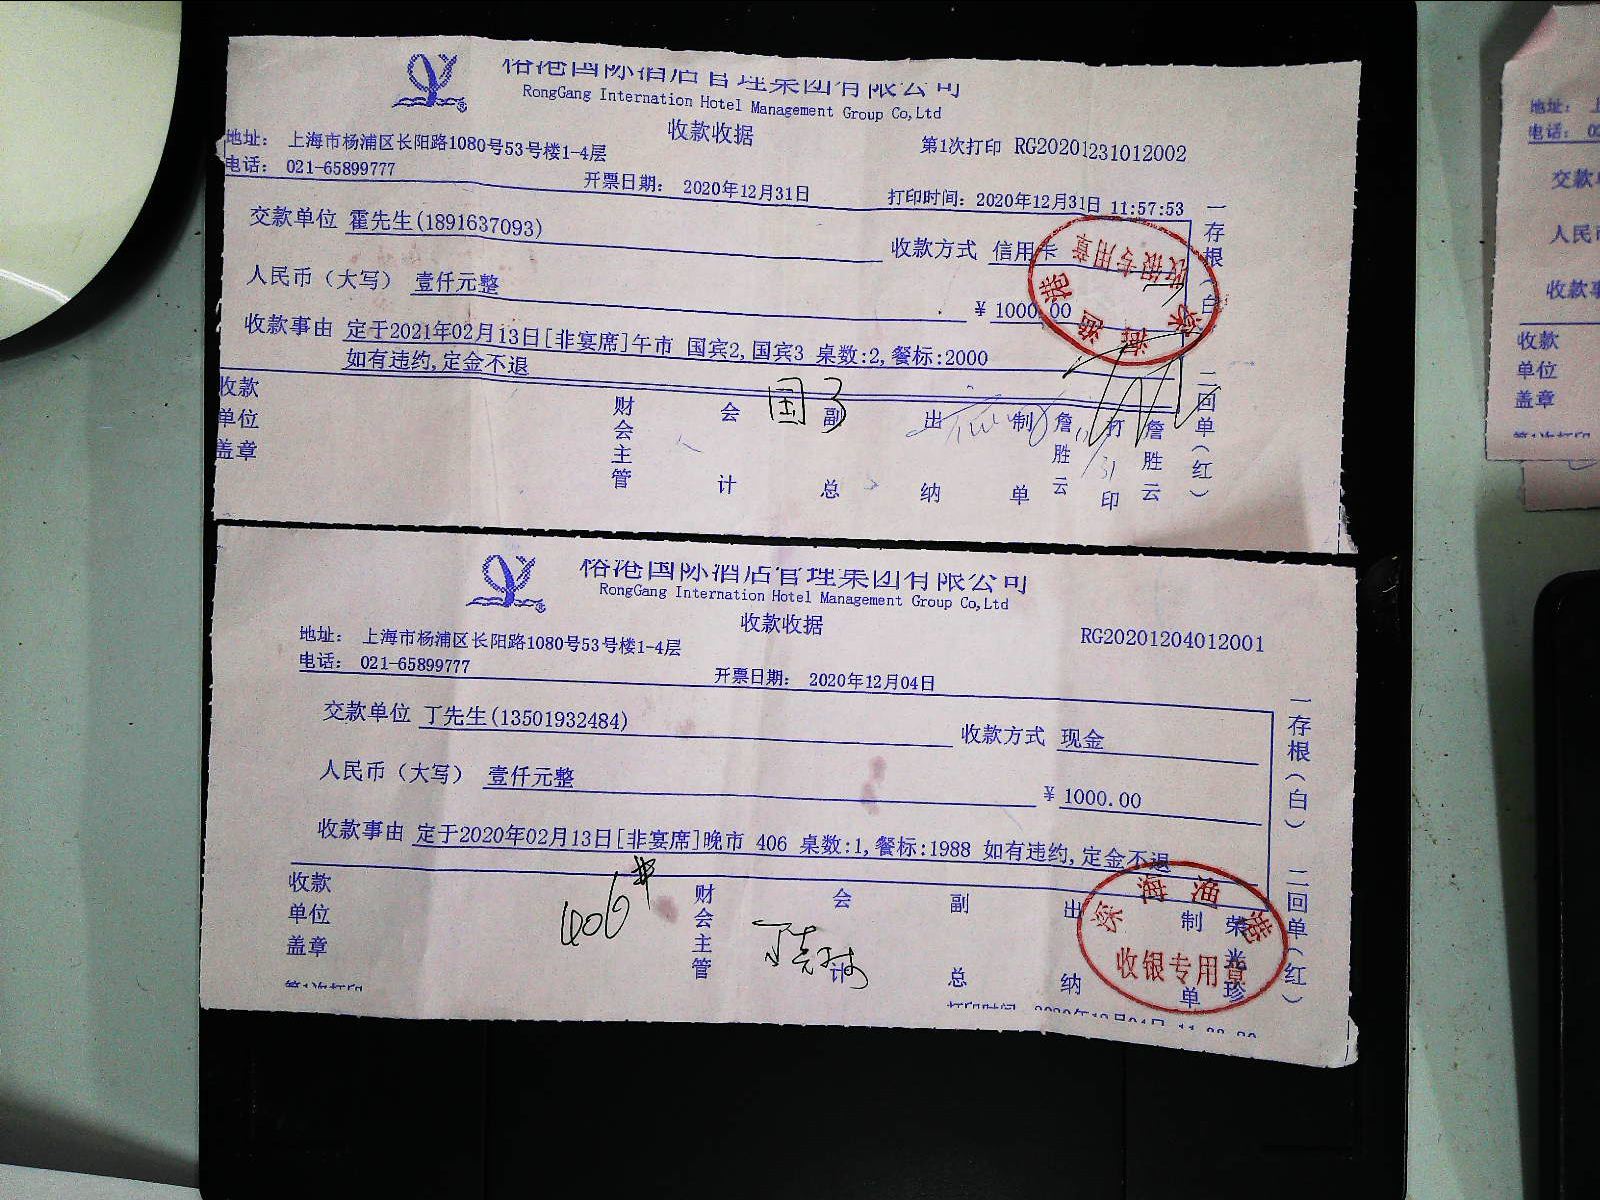 榕港国际酒店管理集团有限公司
RongGang Internation Hotel Management Group Co,Ltd
收款收据
第1次打印 RG20201231012002
地址: 上海市杨浦区长阳路1080号53号楼1-4层
电话: 021-65899777
开票日期: 2020年12月31日
打印时间: 2020年12月31日 11:57:53
交款单位 霍先生(1891637093)
收款方式 信用卡
人民币（大写） 壹仟元整
¥ 1000.00
收款事由 定于2021年02月13日[非宴席]午市 国宾2,国宾3 桌数:2,餐标:2000
如有违约,定金不退
收款单位盖章
财会主管
会计
副总
出纳
制单
詹胜云
打印
詹胜云
国3
一存根(白)
二回单(红)
深海渔港
收银专用章
榕港国际酒店管理集团有限公司
RongGang Internation Hotel Management Group Co,Ltd
收款收据
RG20201204012001
地址: 上海市杨浦区长阳路1080号53号楼1-4层
电话: 021-65899777
开票日期: 2020年12月04日
交款单位 丁先生(13501932484)
收款方式 现金
人民币（大写） 壹仟元整
¥ 1000.00
收款事由 定于2020年02月13日[非宴席]晚市 406 桌数:1,餐标:1988 如有违约,定金不退
收款单位盖章
406#
财会主管
会计
副总
出纳
制单
荣光珍
一存根(白)
二回单(红)
深海渔港
收银专用章
第1次打印
地址:
电话:
交款
人民
收款事
收款
单位
盖章